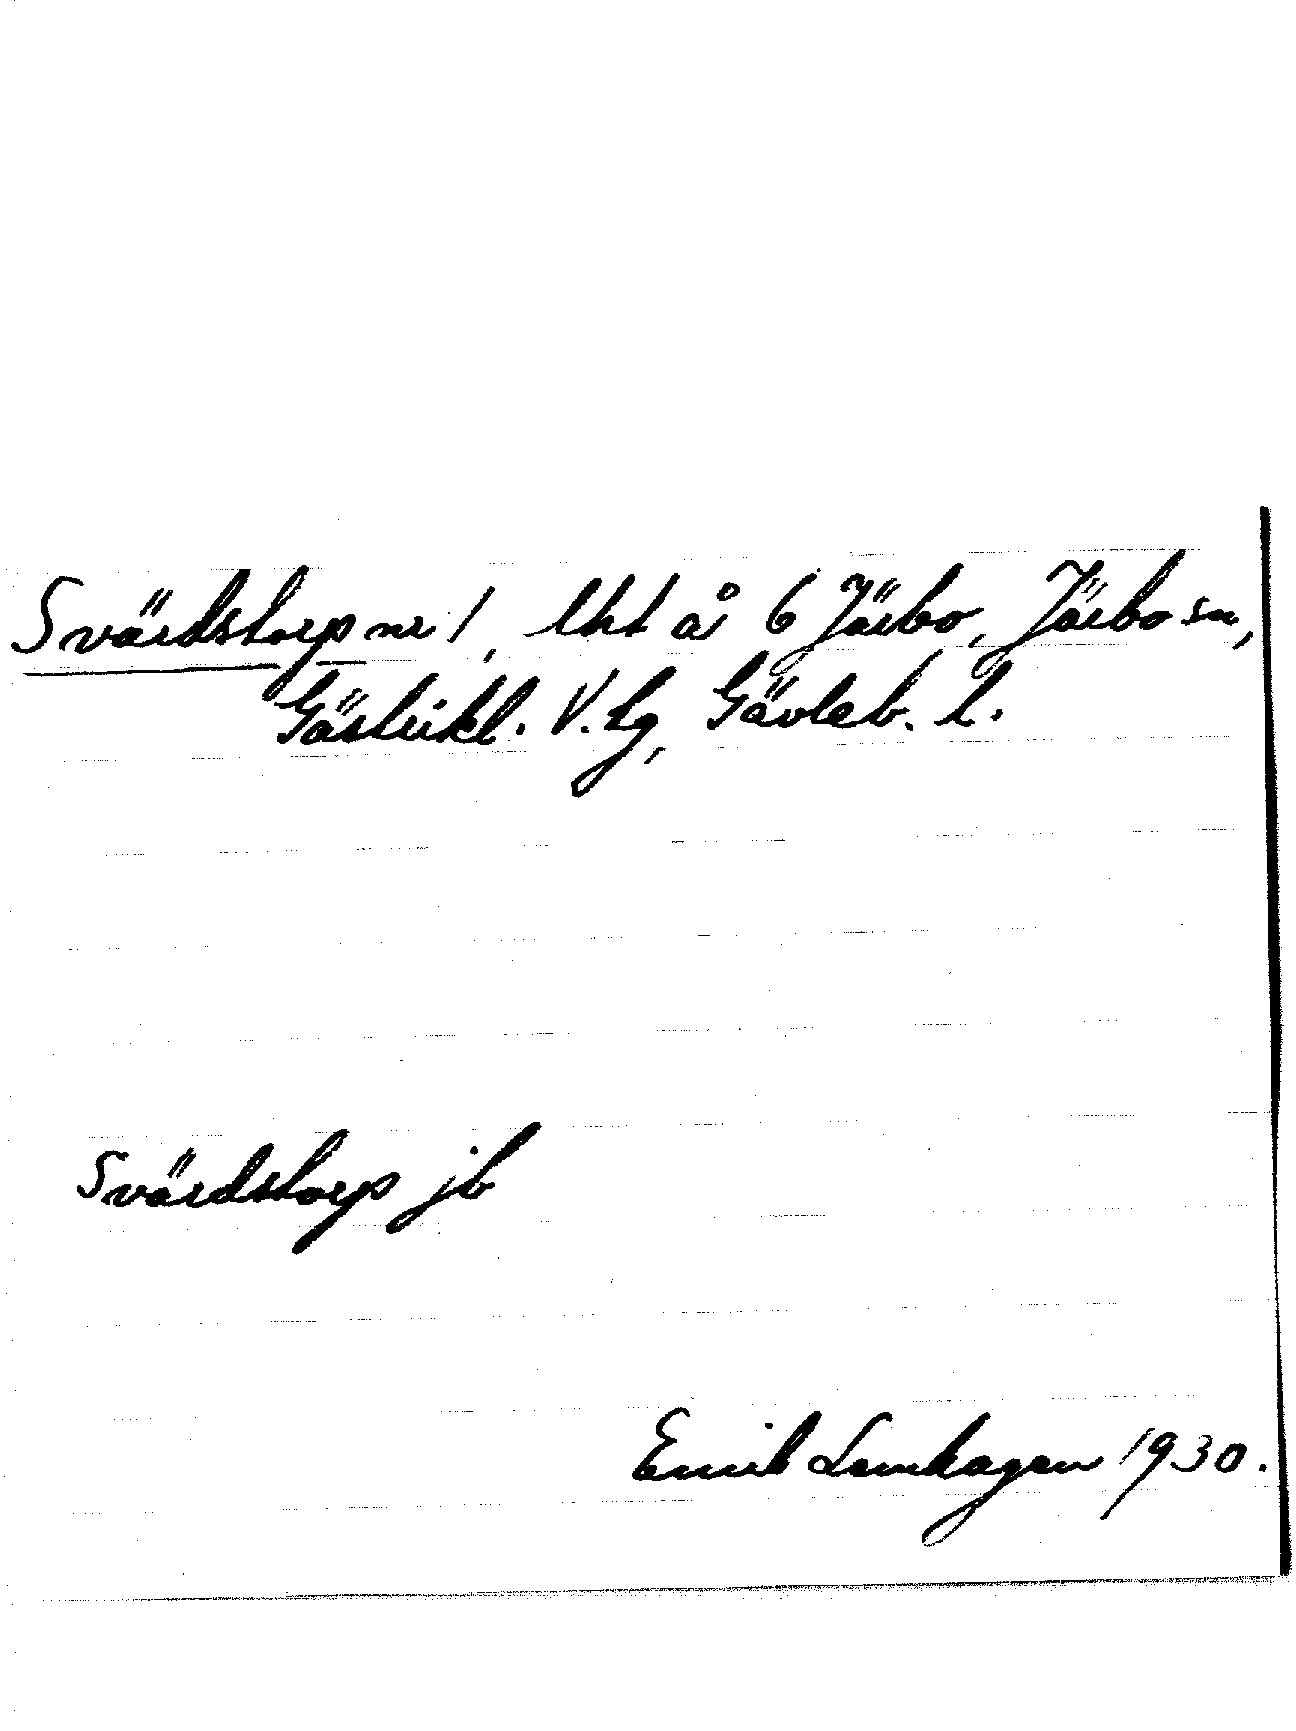 Svärdstorp nr 1, lht å 6 Järbo, Järbo sn,
Gästrikl. V. tg, Gävleb. l.
Svärdstorp jb
Emil Lemhagen 1930.